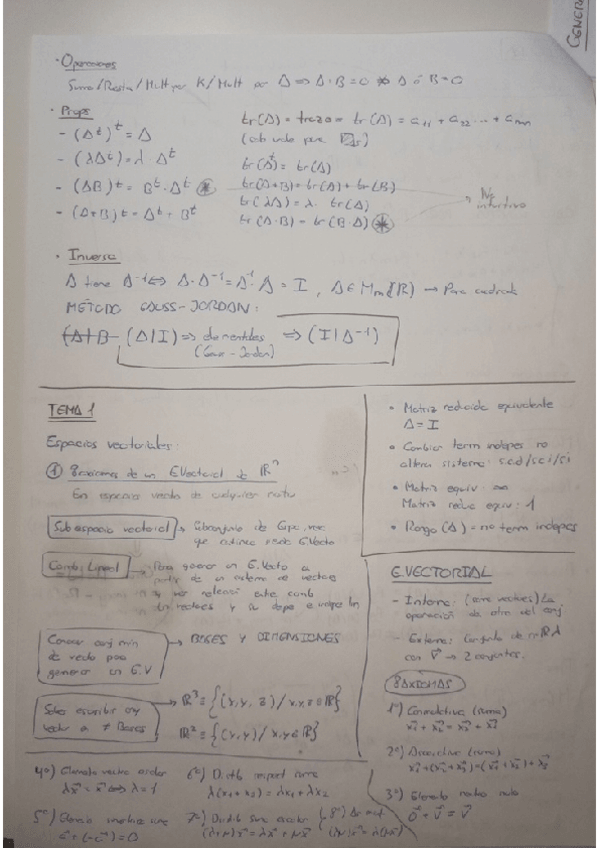 GENER
· Operaciones
Suma/Resta/Mult por K/Mult por Δ ⟹ Δ·B=0 ⇏ Δ ó B=0
· Props
- (Δᵗ)ᵗ = Δ
- (λΔᵗ) = λ·Δᵗ
- (ΔB)ᵗ = Bᵗ·Δᵗ ⊛
- (Δ+B)ᵗ = Δᵗ + Bᵗ
tr(Δ) = traza = tr(Δ) = a₁₁ + a₂₂ ... + aₘₙ
(solo vale para
tr(Δᵗ) = tr(Δ)
tr(Δ+B) = tr(Δ) + tr(B)
tr(λΔ) = λ· tr(Δ)
tr(Δ·B) = tr(B·Δ) ⊛
No intuitivo
· Inversa
Δ tiene Δ⁻¹ ⟺ Δ·Δ⁻¹ = Δ⁻¹·Δ = I , Δ∈ M (ℝ) → Para cuadrada
MÉTODO GAUSS-JORDAN:
(Δ|B (Δ|I) ⟹ elementales ⟹ (I|Δ⁻¹)
(Gauss-Jordan)
TEMA 1
Espacios vectoriales:
① 8 axiomas de un E.Vectorial de ℝⁿ
En espacios vecto de cualquier natu
Subespacio vectorial → Subconjunto de
que
Comb. Lineal → Para generar un E.Vecto a
partir de un sistema de vectores
y ver relación entre comb
de vectores y su depe e indepe lin
Conocer conj min
de vecto para
generar un E.V
→ BASES Y DIMENSIONES
Saber escribir
vector a ≠ Bases
→ ℝ³ ≡ {(x,y,z) / x,y,z∈ℝ}
ℝ² ≡ {(x,y) / x,y∈ℝ}
· Matriz reducida equivalente
Δ = I
· Cambiar term indepes no
altera sistema: scd/sci/si
· Matriz equiv: ∞
Matriz reduc equiv: 1
· Rango (Δ) = no term indepes
E.VECTORIAL
- Interna: (entre vectores) La
operación da otro del conj
- Externa: Conjunto de ℝ λ
con v⃗ → 2 conjuntos.
8 AXIOMAS
1º) Conmutativa (suma)
x₁⃗ + x₂⃗ = x₂⃗ + x₁⃗
2º) Asociativa (suma)
x₁⃗ + (x₂⃗ + x₃⃗) = (x₁⃗ + x₂⃗) + x₃⃗
3º) Elemento neutro nulo
0⃗ + v⃗ = v⃗
4º) Elemento neutro escalar
λx⃗ = x⃗ ⟺ λ=1
5º) Elemento
a⃗ + (-a⃗) = 0
6º) Distrib respect suma
λ(x₁+x₂) = λx₁ + λx₂
7º) Distrib suma escalar
(λ+μ)x⃗ = λx⃗ + μx⃗
8º)
(λμ)x⃗ = λ(μx⃗)